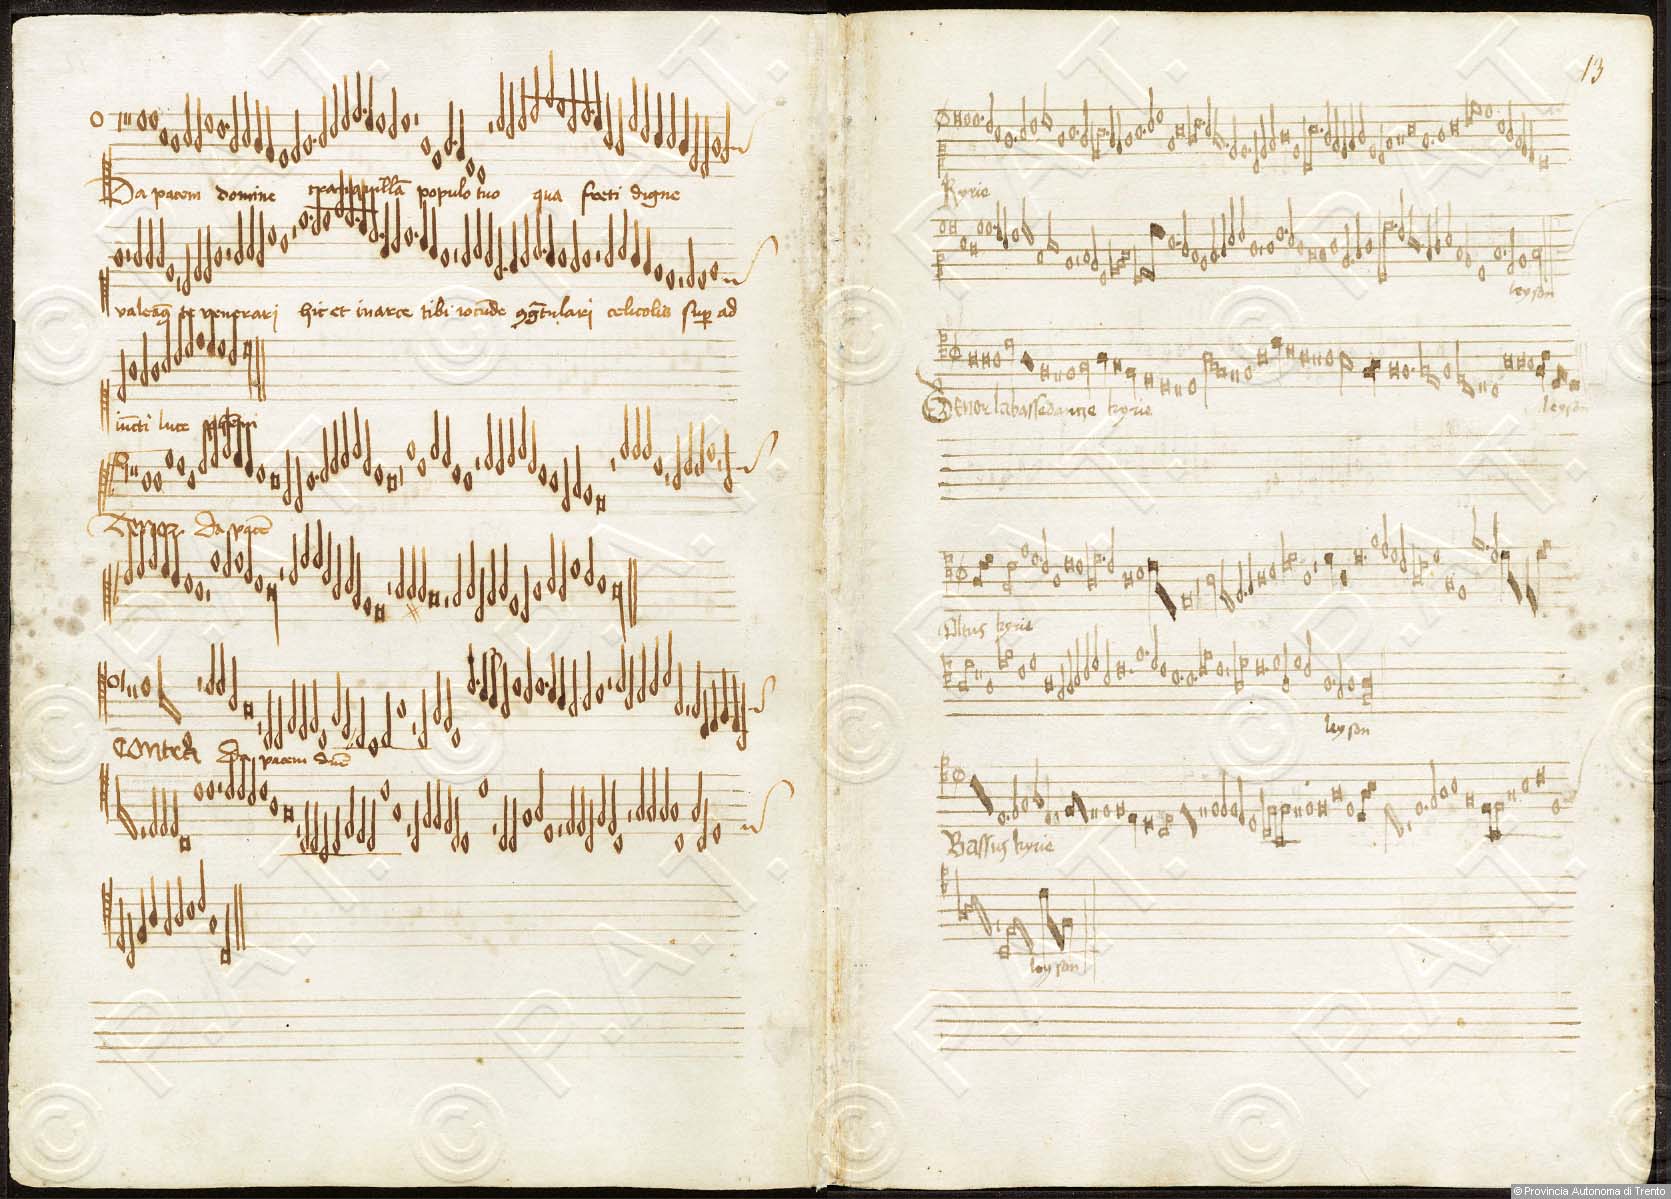 Da pacem domine tranquillã populo tuo qua freti digne
te venerari hic et in arce tibi celicolis sup ad
iuncti luce
Tenor Da pacẽ
Contra Da pacem dñe
13
Kyrie
leyson
Tenor labassedanze kyrie
leyson
Altus kyrie
leyson
Bassus kyrie
leyson
© Provincia Autonoma di Trento